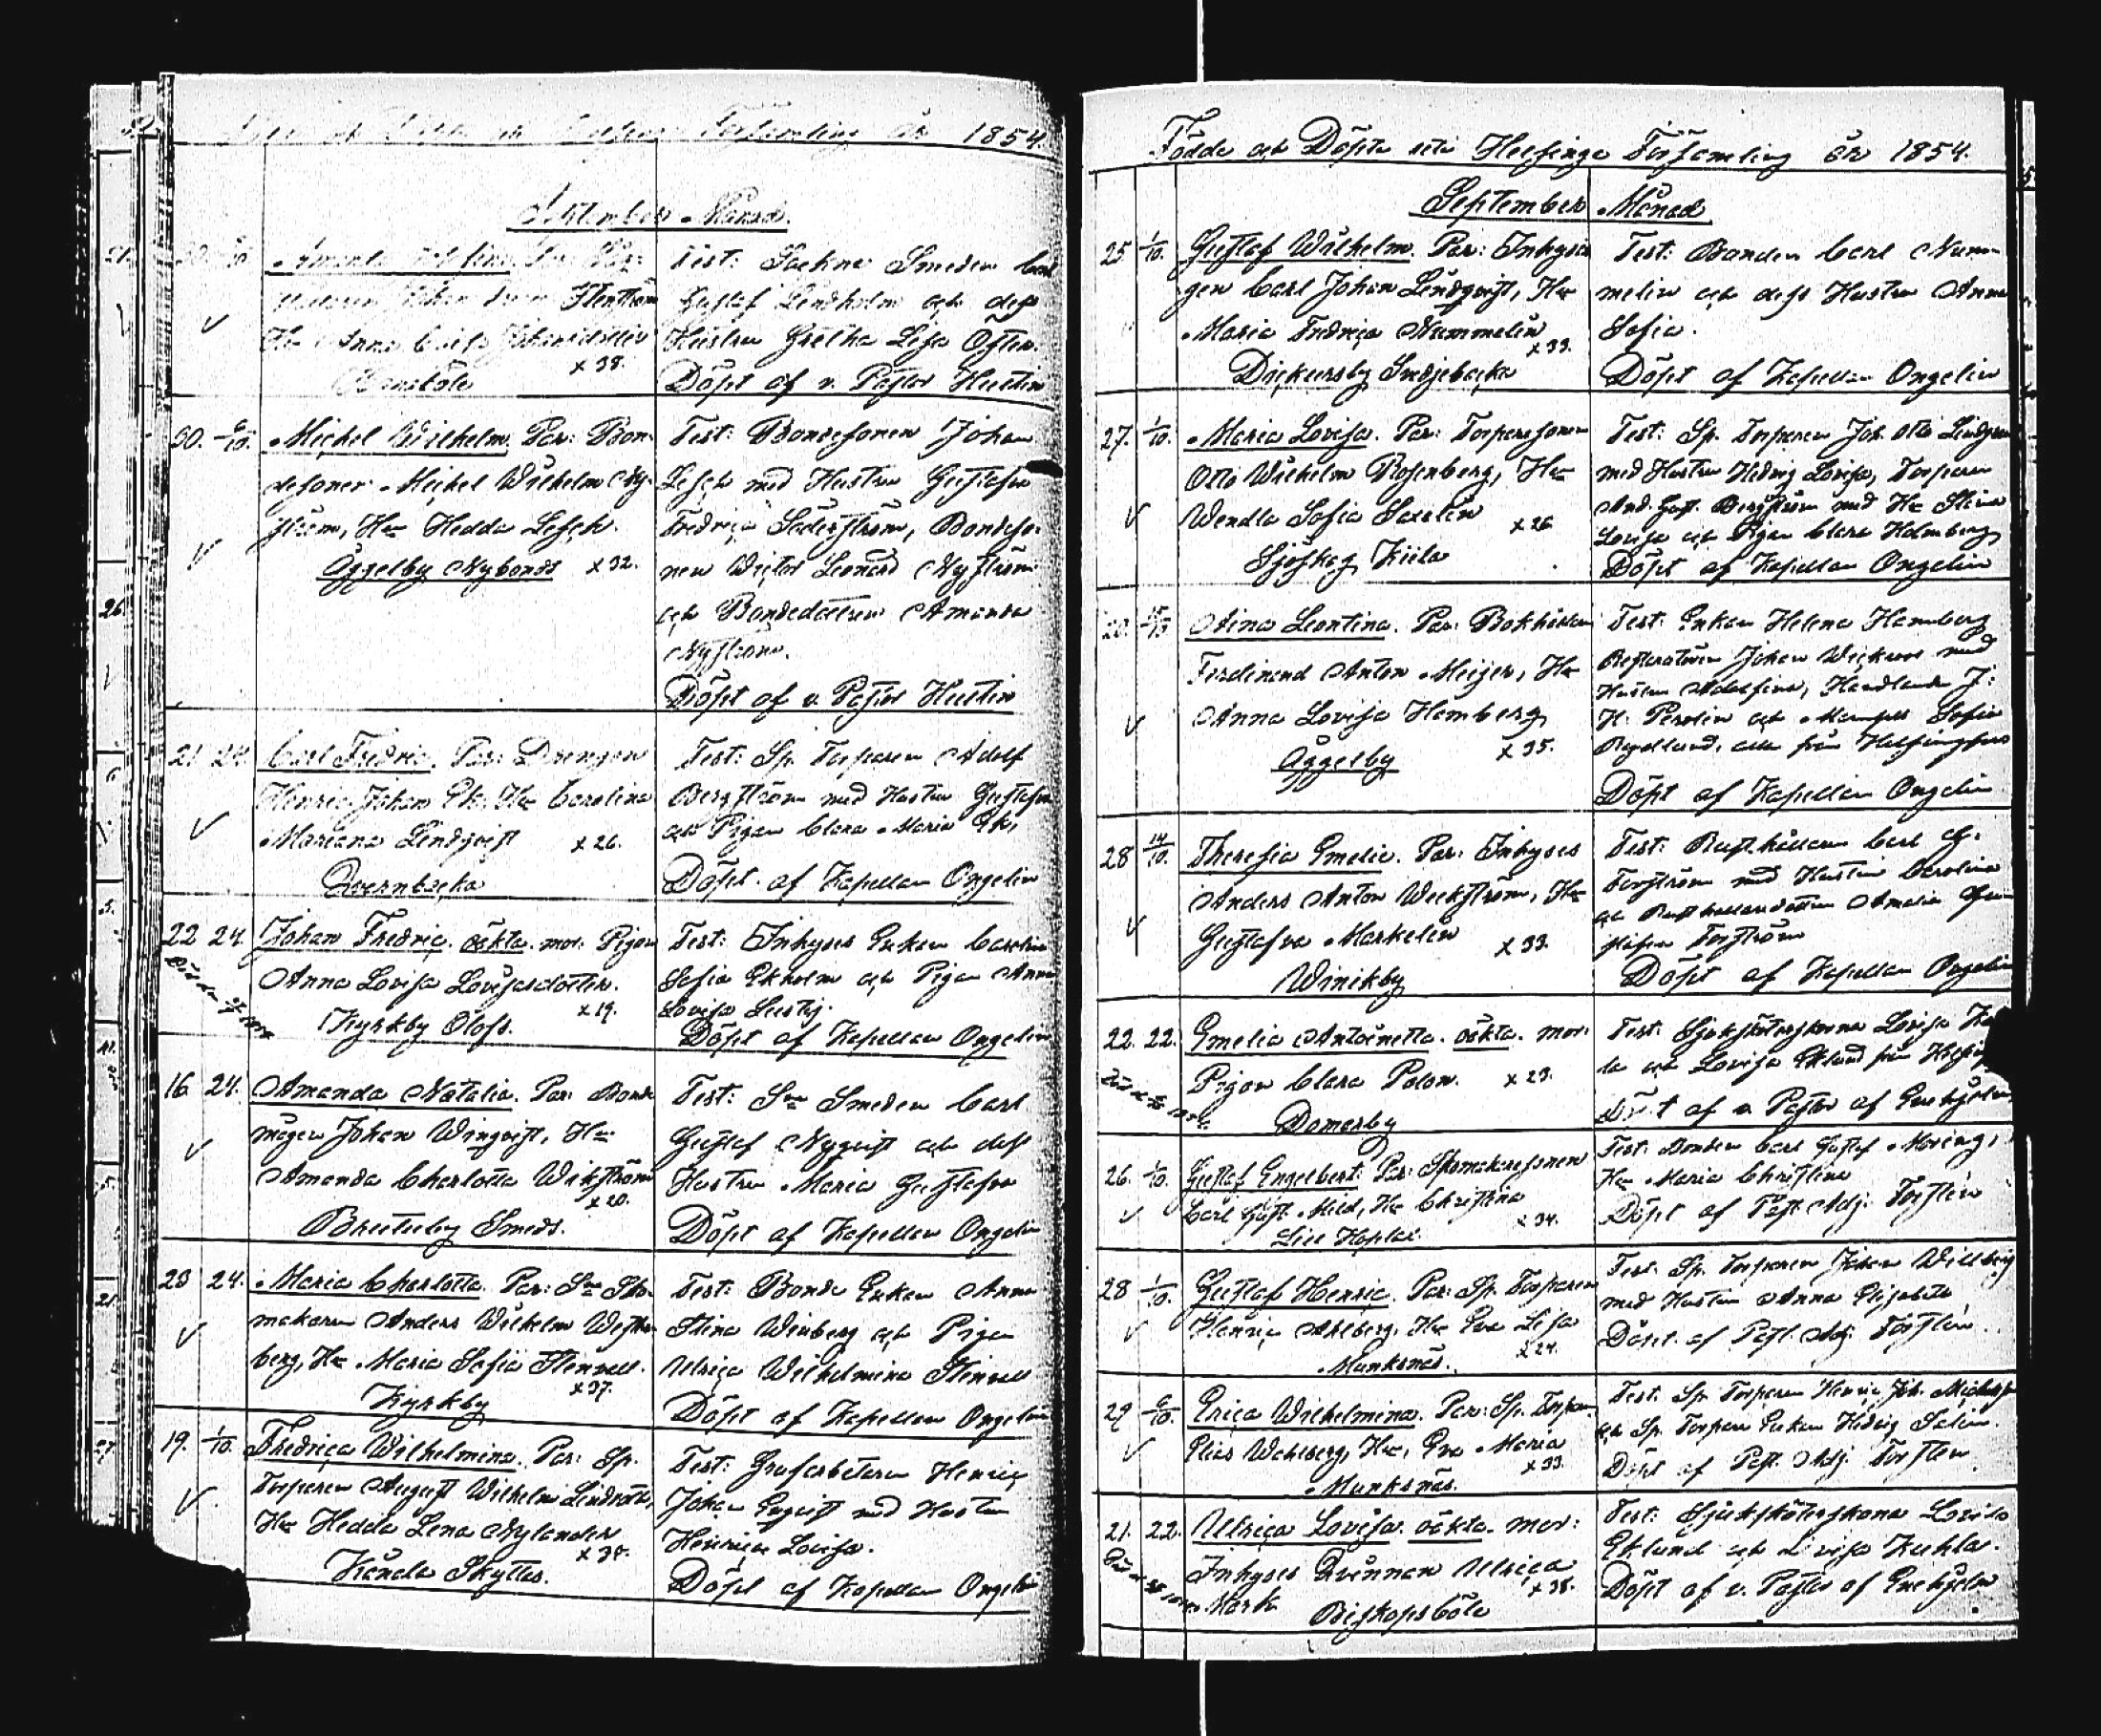 1854.
September Månad.
Test: Sockne Smeden Carl
Gustaf Lindholm och dess
Hustru Gretha Lisa Öster.
Anna
x 38.
Döpt af v. Pastor Hertin
30. 6/10. Michel Wilhelm. Par: Bon-
desonen Michel Wilhelm Ny-
ström, Hu Hedda Lesch.
Åggelby Nybonds x 32.
Test: Bondesonen Johan
Lesch med Hustru Gustafva
Fredrica Söderström, Bondeso-
nen Victor Leonard Nyström
och Bondedottren Amanda
Nyström.
Döpt af v. Pastor Hertin
21 24. Carl Fredric. Par: Drengen
Henric Johan Ek, Hu Carolina
Mariana Lindqvist x 26.
Qvarnbacka
Test: Sp. Torparen Adolf
Bergström med Hustru Gustafva
och Pigan Clara Maria Ek,
Döpt af Kapellan Ongelin
22 24. Johan Fredric. oäkta. mor: Pigan
Anna Lovisa Lovisasdotter.
x 19.
Kyrkby Olofs.
Test: Inhyses Enkan Carolina
Sofia Ekholm och Pigan Anna
Lovisa Lustig.
Döpt af Kapellan Ongelin
16 24. Amanda Natalia. Par: Bonde
mågen Johan Winqvist, Hu
Amanda Charlotta Wikström
x 20.
Smeds.
Test: Sne Smeden Carl
Gustaf Nyqvist och dess
Hustru Maria Gustafva
Döpt af Kapellan Ongelin
23 24. Maria Charlotta. Par: Sne Sko-
makaren Anders Wilhelm Wester-
berg, Hu Maria Sofia Stenvall.
x 37.
Kyrkby
Test: Bonde Enkan Anna
Stina Winberg och Pigan
Ulrica Wilhelmina Stenvall
Döpt af Kapellan Ongelin
19. 1/10. Fredrica Wilhelmina. Par: Sp.
Torparen August Wilhelm Lindroos,
Hu Hedda Lena Nylander
x 34.
Kånala Skyttas.
Test: Grufarbetaren Henric
Johan Engqvist med Hustru
Henrica Lovisa.
Döpt af Kapellan Ongelin
Födde och Döpte uti Helsinge Församling år 1854.
September Månad
25 1/10. Gustaf Wilhelm. Par: Inhysin-
gen Carl Johan Lindqvist, Hu
Maria Fredrica Nummelin
x 33.
Dickursby Sredjebacka
Test: Bonden Carl Num-
melin och dess Hustru Anna
Sofia.
Döpt af Kapellan Ongelin
27. 1/10. Maria Lovisa. Par: Torparesonen
Otto Wilhelm Rosenberg, Hu
Wendla Sofia Saxelin x 26
Sjöskog Kiila
Test: Sp. Torparen Joh. Otto Lindgren
med Hustru Hedvig Lovisa, Torparen
And. Gust. Bergström med Hu Stina
Lovisa och Pigan Clara Holmberg
Döpt af Kapellan Ongelin
20. 15/10 Aina Leontina. Par: Bokhållaren
Ferdinand Anton Meijer, Hu
Anna Lovisa Hamberg
x 35.
Åggelby
Test: Enkan Helena Hamberg
Johan med
Hustru Adolfina, Handlanden J:
H. Perolin och Mamsell Sofia
alla från Helsingfors
Döpt af Kapellan Ongelin
28 14/10. Theresia Emelie. Par: Inhyses
Anders Anton Weckström, Hu
Gustafva Markelin x 33.
Winikby
Test: Rusthållaren Carl G.
Forström med Hustru Carolina
och Rusthållaredottren Amalia
Forström
Döpt af Kapellan Ongelin
22. 22. Emelia Antoinetta. oäkta. mor:
Pigan Clara Polon. x 23.
Domarby
Test: Sjuksköterskorna Lovisa
och Lovisa Eklund från
Döpt af v. Pastor af Enehjelm
26. 1/10. Gustaf Engelbert. Par: Skomakaresonen
Carl Gust. Mild, Hu Christina
x 34.
Lill Hoplax.
Test: Bonden Carl Gustaf Moring,
Hu Maria Christina
Döpt af Past. Adj. Forstén
28 1/10. Gustaf Henric. Par: Sp. Torparen
Henric Ahlberg, Hu Eva Lisa
x 24.
Munksnäs.
Test: Sp. Torparen Johan Willberg
med Hustru Anna Elisabeta
Döpt af Past. Adj. Forstén.
29 6/10. Erica Wilhelmina. Par: Sp. Torpar.
Elias Wahlberg, Hu, Eva Maria
x 33.
Munksnäs.
Test: Sp. Torparen Henric Joh. Michelsson
och Sp. Torpare Enkan Hedvig Salin.
Döpt af Past. Adj. Forstén
21. 22. Ulrica Lovisa. oäkta. mor:
Inhyses Qvinnan Ulrica
x 38.
Mark Biskopsböle
Test: Sjuksköterskorna Lovisa
Eklund och Lovisa Kuhla.
Döpt af v. Pastor af Enehjelm